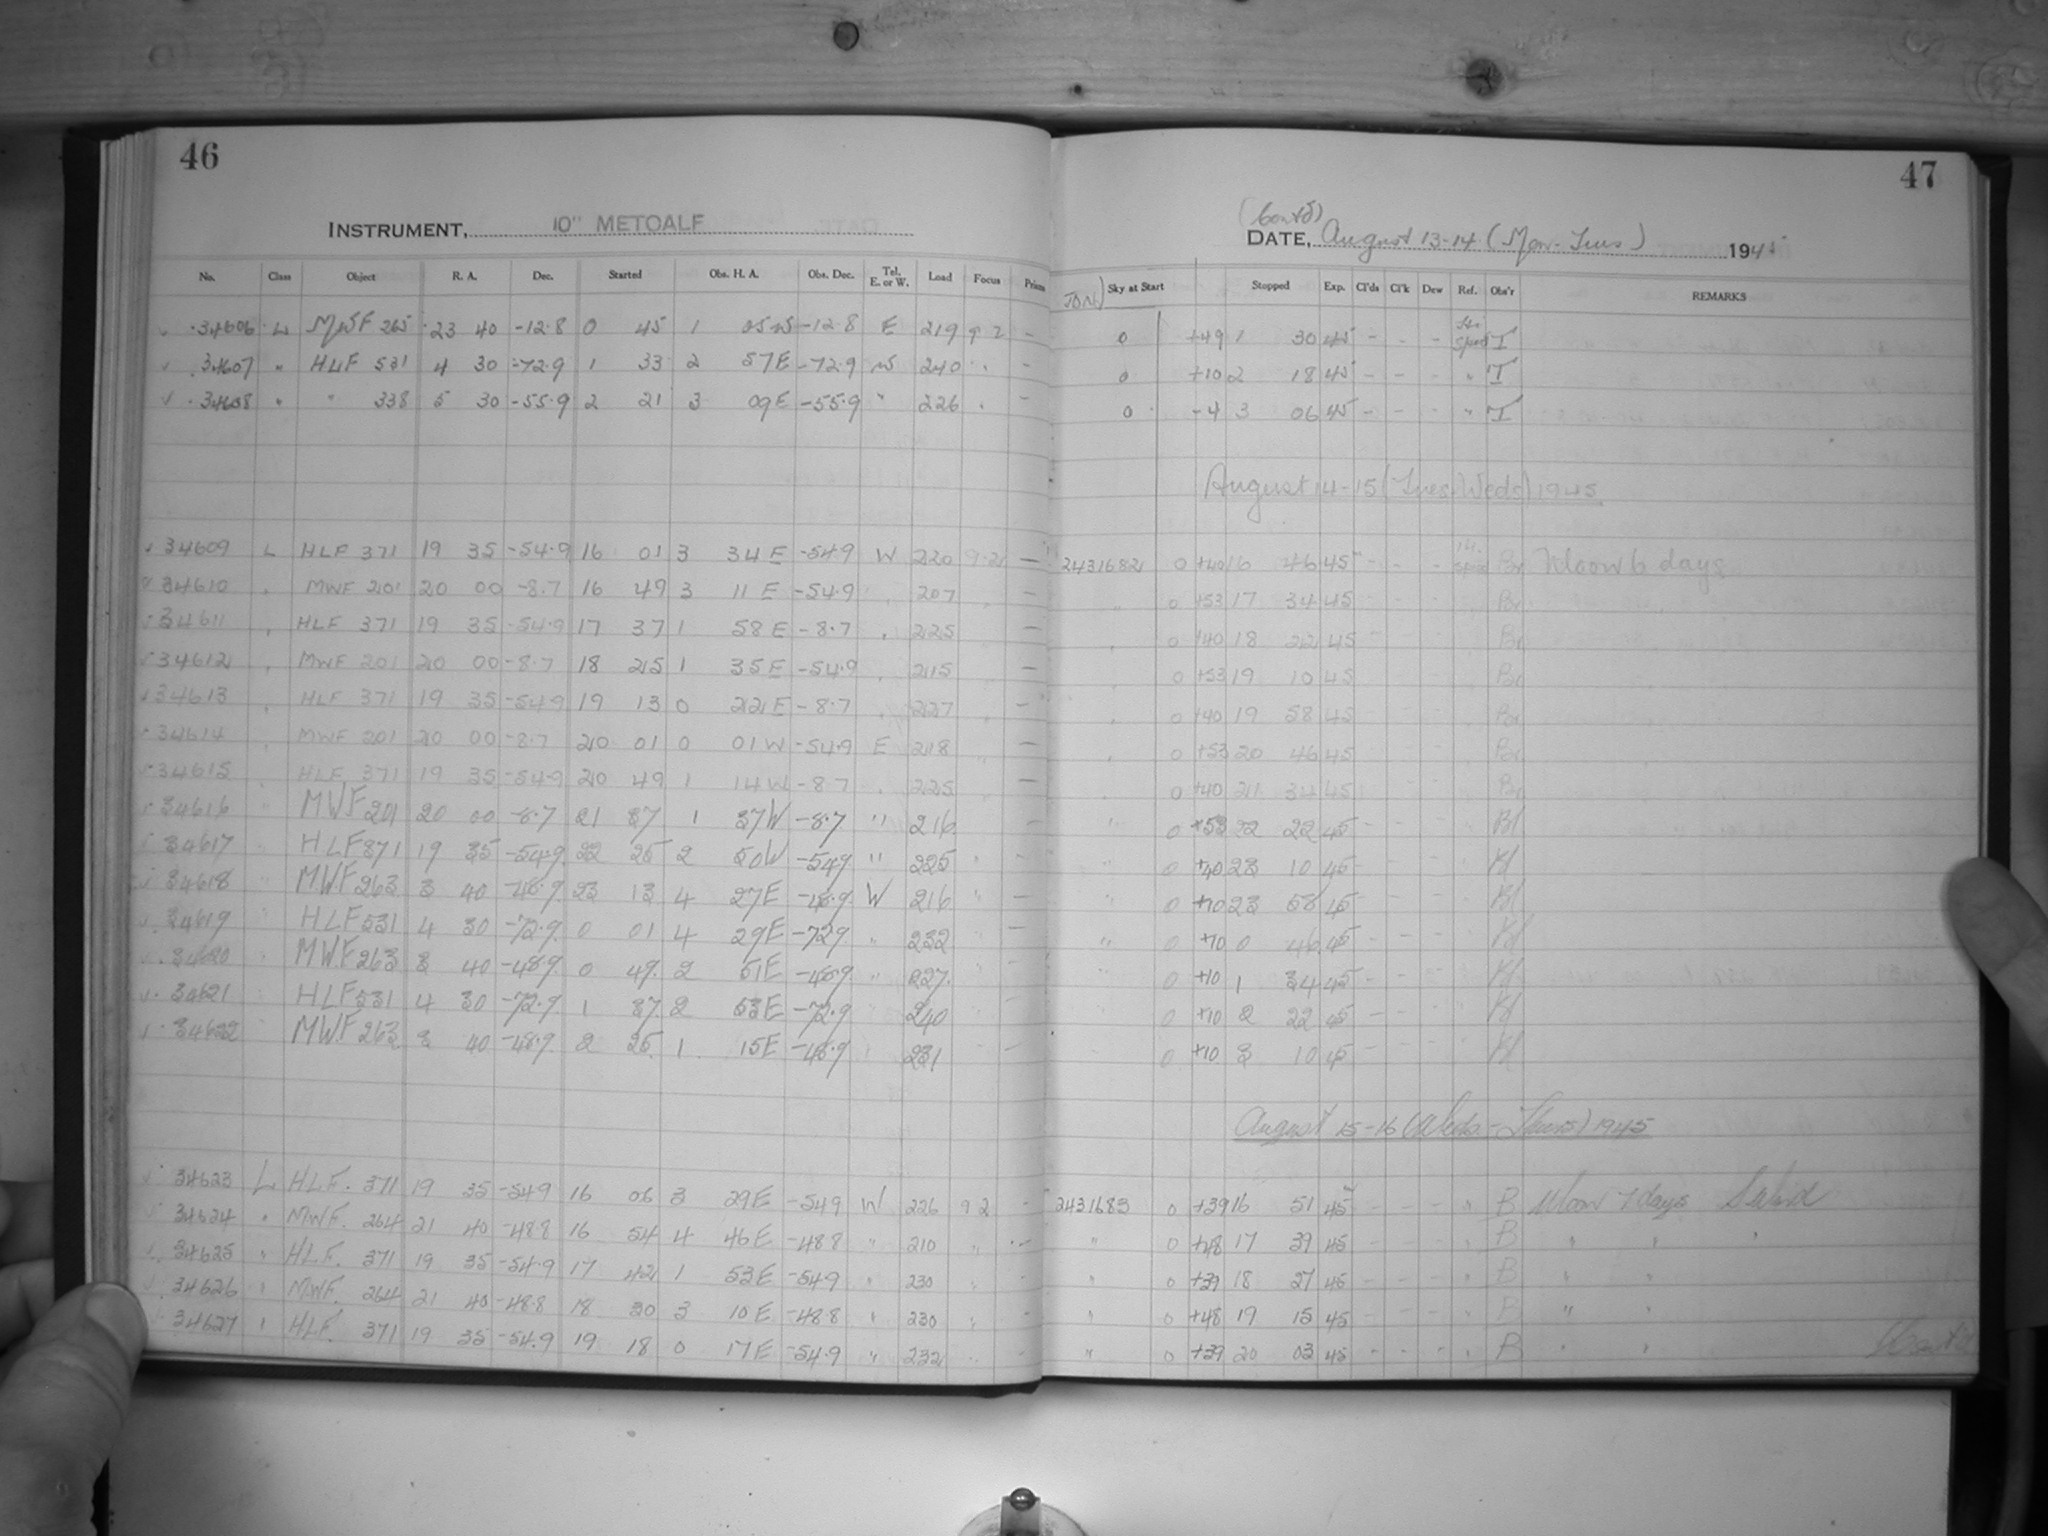 46
INSTRUMENT, 10" METCALF
No. Class Object R. A. Dec. Started Obs. H. A. Obs. Dec. Tel. E. or W. Load Focus Prism
34606 L MWF 265 23 40 -12.8 0 45 1 05 W -12.8 E 219 9 2 -
34607 " HLF 531 4 30 -72.9 1 33 2 57 E -72.9 W 240 " -
34608 " " 338 5 30 -55.9 2 21 3 09 E -55.9 " 226 " -
34609 L HLF 371 19 35 -54.9 16 01 3 34 E -54.9 W 220 9.2 -
34610 " MWF 201 20 00 -8.7 16 49 3 11 E -54.9 " 207 " -
34611 " HLF 371 19 35 -54.9 17 37 1 58 E -8.7 " 225 " -
34612 " MWF 201 20 00 -8.7 18 25 1 35 E -54.9 " 215 " -
34613 " HLF 371 19 35 -54.9 19 13 0 22 E -8.7 " 227 " -
34614 " MWF 201 20 00 -8.7 20 01 0 01 W -54.9 E 218 " -
34615 " HLF 371 19 35 -54.9 20 49 1 14 W -8.7 " 225 " -
34616 " MWF 201 20 00 -8.7 21 37 1 37 W -8.7 " 216 " -
34617 " HLF 371 19 35 -54.9 22 25 2 50 W -54.9 " 225 " -
34618 " MWF 263 3 40 -48.9 23 13 4 27 E -48.9 W 216 " -
34619 " HLF 531 4 30 -72.9 0 01 4 29 E -72.9 " 232 " -
34620 " MWF 263 3 40 -48.9 0 49 2 51 E -48.9 " 227 " -
34621 HLF 531 4 30 -72.9 1 37 2 53 E -72.9 " 240 -
34622 MWF 263 3 40 -48.9 2 25 1 15 E -48.9 " 231 -
34623 L HLF. 371 19 35 -54.9 16 06 3 29 E -54.9 W 226 9 2 -
34624 " MWF. 264 21 40 -48.8 16 54 4 46 E -48.8 " 210 " -
34625 " HLF. 371 19 35 -54.9 17 42 1 53 E -54.9 " 230 " -
34626 " MWF. 264 21 40 -48.8 18 30 3 10 E -48.8 " 230 " -
34627 " HLF. 371 19 35 -54.9 19 18 0 17 E -54.9 " 232 " -
47
(Contd)
DATE, August 13-14 (Mon-Tues) 1945
JDN Sky at Start Stopped Exp. Cl'ds Cl'k Dew Ref. Obs'r REMARKS
0 +49 1 30 45 - - - Hi Speed T
0 +10 2 18 45 - - - " T
0 -4 3 06 45 - - - " T
August 14-15 (Tues-Weds) 1945
2431682 0 +40 16 46 45 - - - Hi. Speed Br Moon 6 days
" 0 +53 17 34 45 - - - " Br
" 0 +40 18 22 45 - - - " Br
" 0 +53 19 10 45 - - - " Br
" 0 +40 19 58 45 - - - " Br
" 0 +53 20 46 45 - - - " Br
" 0 +40 21 34 45 - - - " Br
" 0 +53 22 22 45 - - - " Bl
" 0 +40 23 10 45 - - - " Bl
" 0 +10 23 58 45 - - - " Bl
" 0 +10 0 46 45 - - - " Bl
" 0 +10 1 34 45 - - - " Bl
0 +10 2 22 45 - - - " Bl
0 +10 3 10 45 - - - Bl
August 15-16 (Weds.-Thurs) 1945
2431683 0 +39 16 51 45 - - - " B Moon 7 days S. Wind
" 0 +48 17 39 45 - - - " B " " "
" 0 +39 18 27 45 - - - " B " "
" 0 +48 19 15 45 - - - " B " "
" 0 +39 20 03 45 - - - " B " "